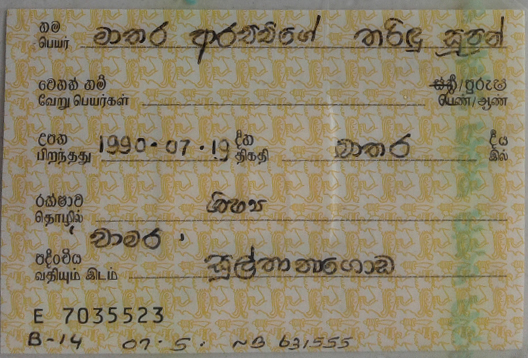 නම
பெயர் මාතර ආරච්චිගේ තරිඳු සුපුන්
වෙනත් නම්
வேறு பெயர்கள் ස්ත්‍රී/පුරුෂ
பெண்/ஆண்
උපත
பிறந்தது 1990-07-19 දින
திகதி මාතර දීය
இல்
රක්ෂාව
தொழில் ශිෂ්‍ය
'චාමර'
පදිංචිය
வதியும் இடம் සුල්තානාගොඩ
E 7035523
B-14 07.5. NB 631555